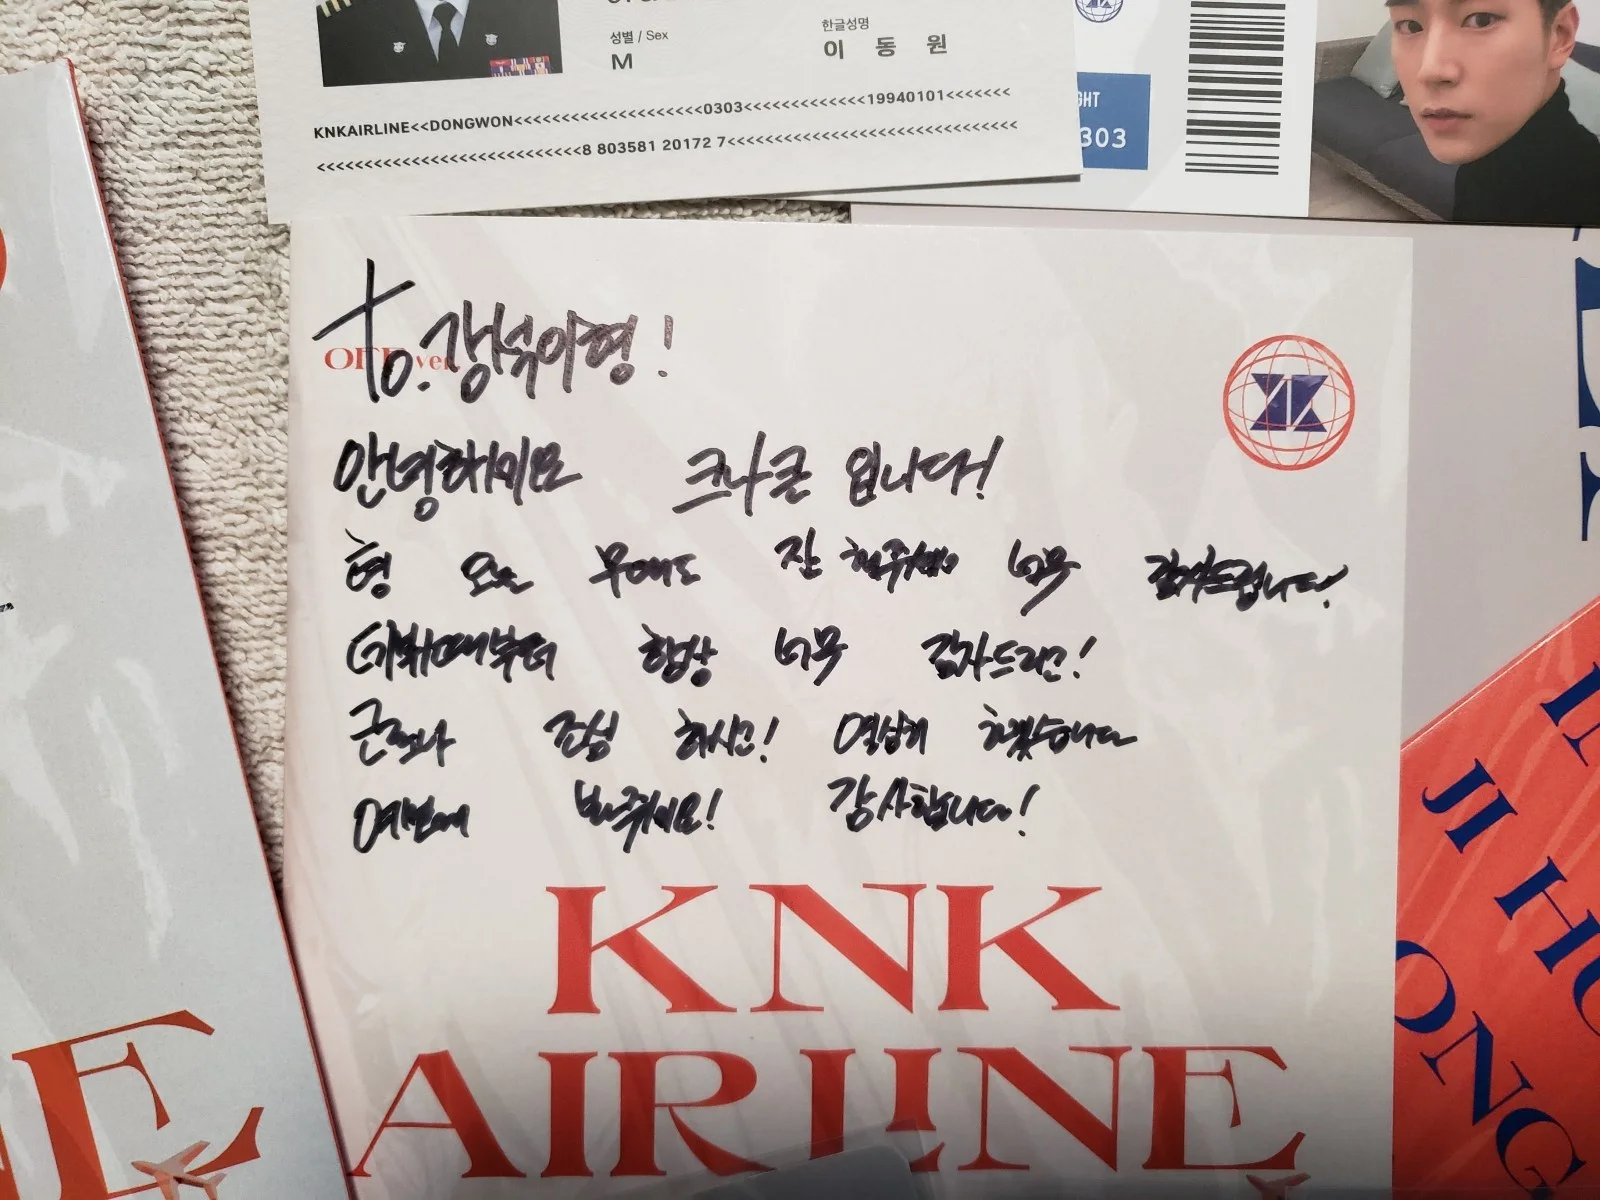 성별 / Sex
M
한글성명
이 동 원
KNKAIRLINE<<DONGWON<<<<<<<<<<<<<<<<<<<<<<0303<<<<<<<<<<<<<<19940101<<<<<<<
<<<<<<<<<<<<<<<<<<<<<<<<<<<<8 803581 20172 7<<<<<<<<<<<<<<<<<<<<<<<<<<<<<<<
303
to. 강석이형!
안녕하세요 크나큰 입니다!
형 오늘 무대도 잘 해주셔서 너무 감사드립니다!
데뷔때부터 항상 너무 감사드리고!
건강 조심 하시고! 열심히 하겠습니다
예쁘게 봐주세요! 감사합니다!
KNK
AIRLINE
JI HU
ONG